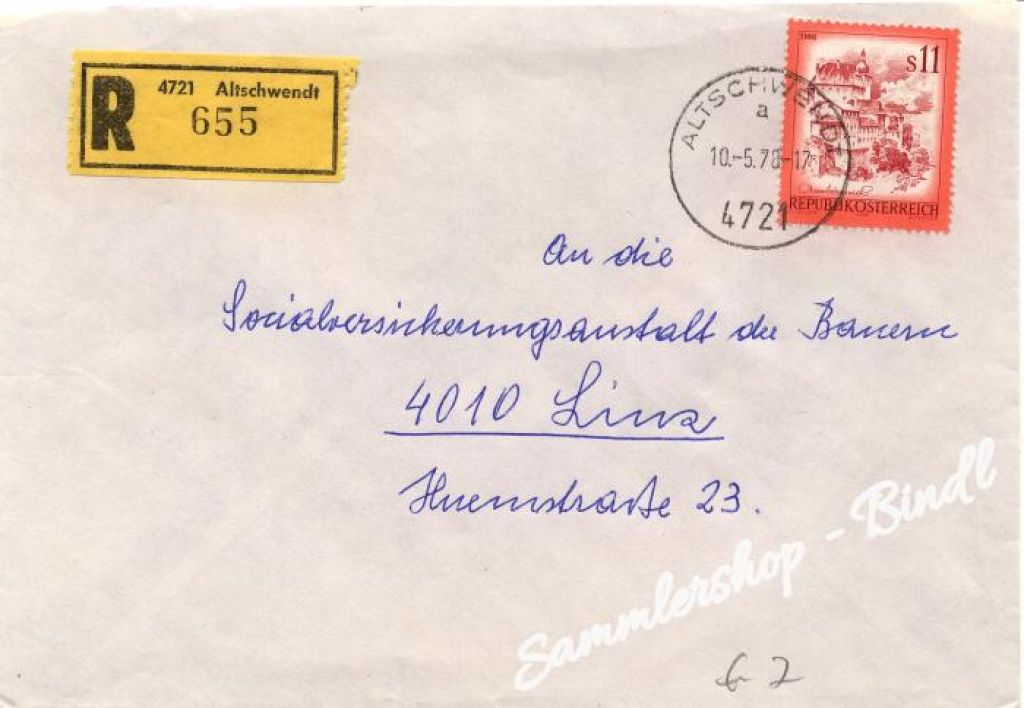 R 4721 Altschwendt
655
ALTSCHWENDT
a
10.-5.78-17
4721
S11
REPUBLIK ÖSTERREICH
An die
Socialversicherungsanstalt der Bauern
4010 Linz
Huemstraße 23.
Sammlershop - Bindl